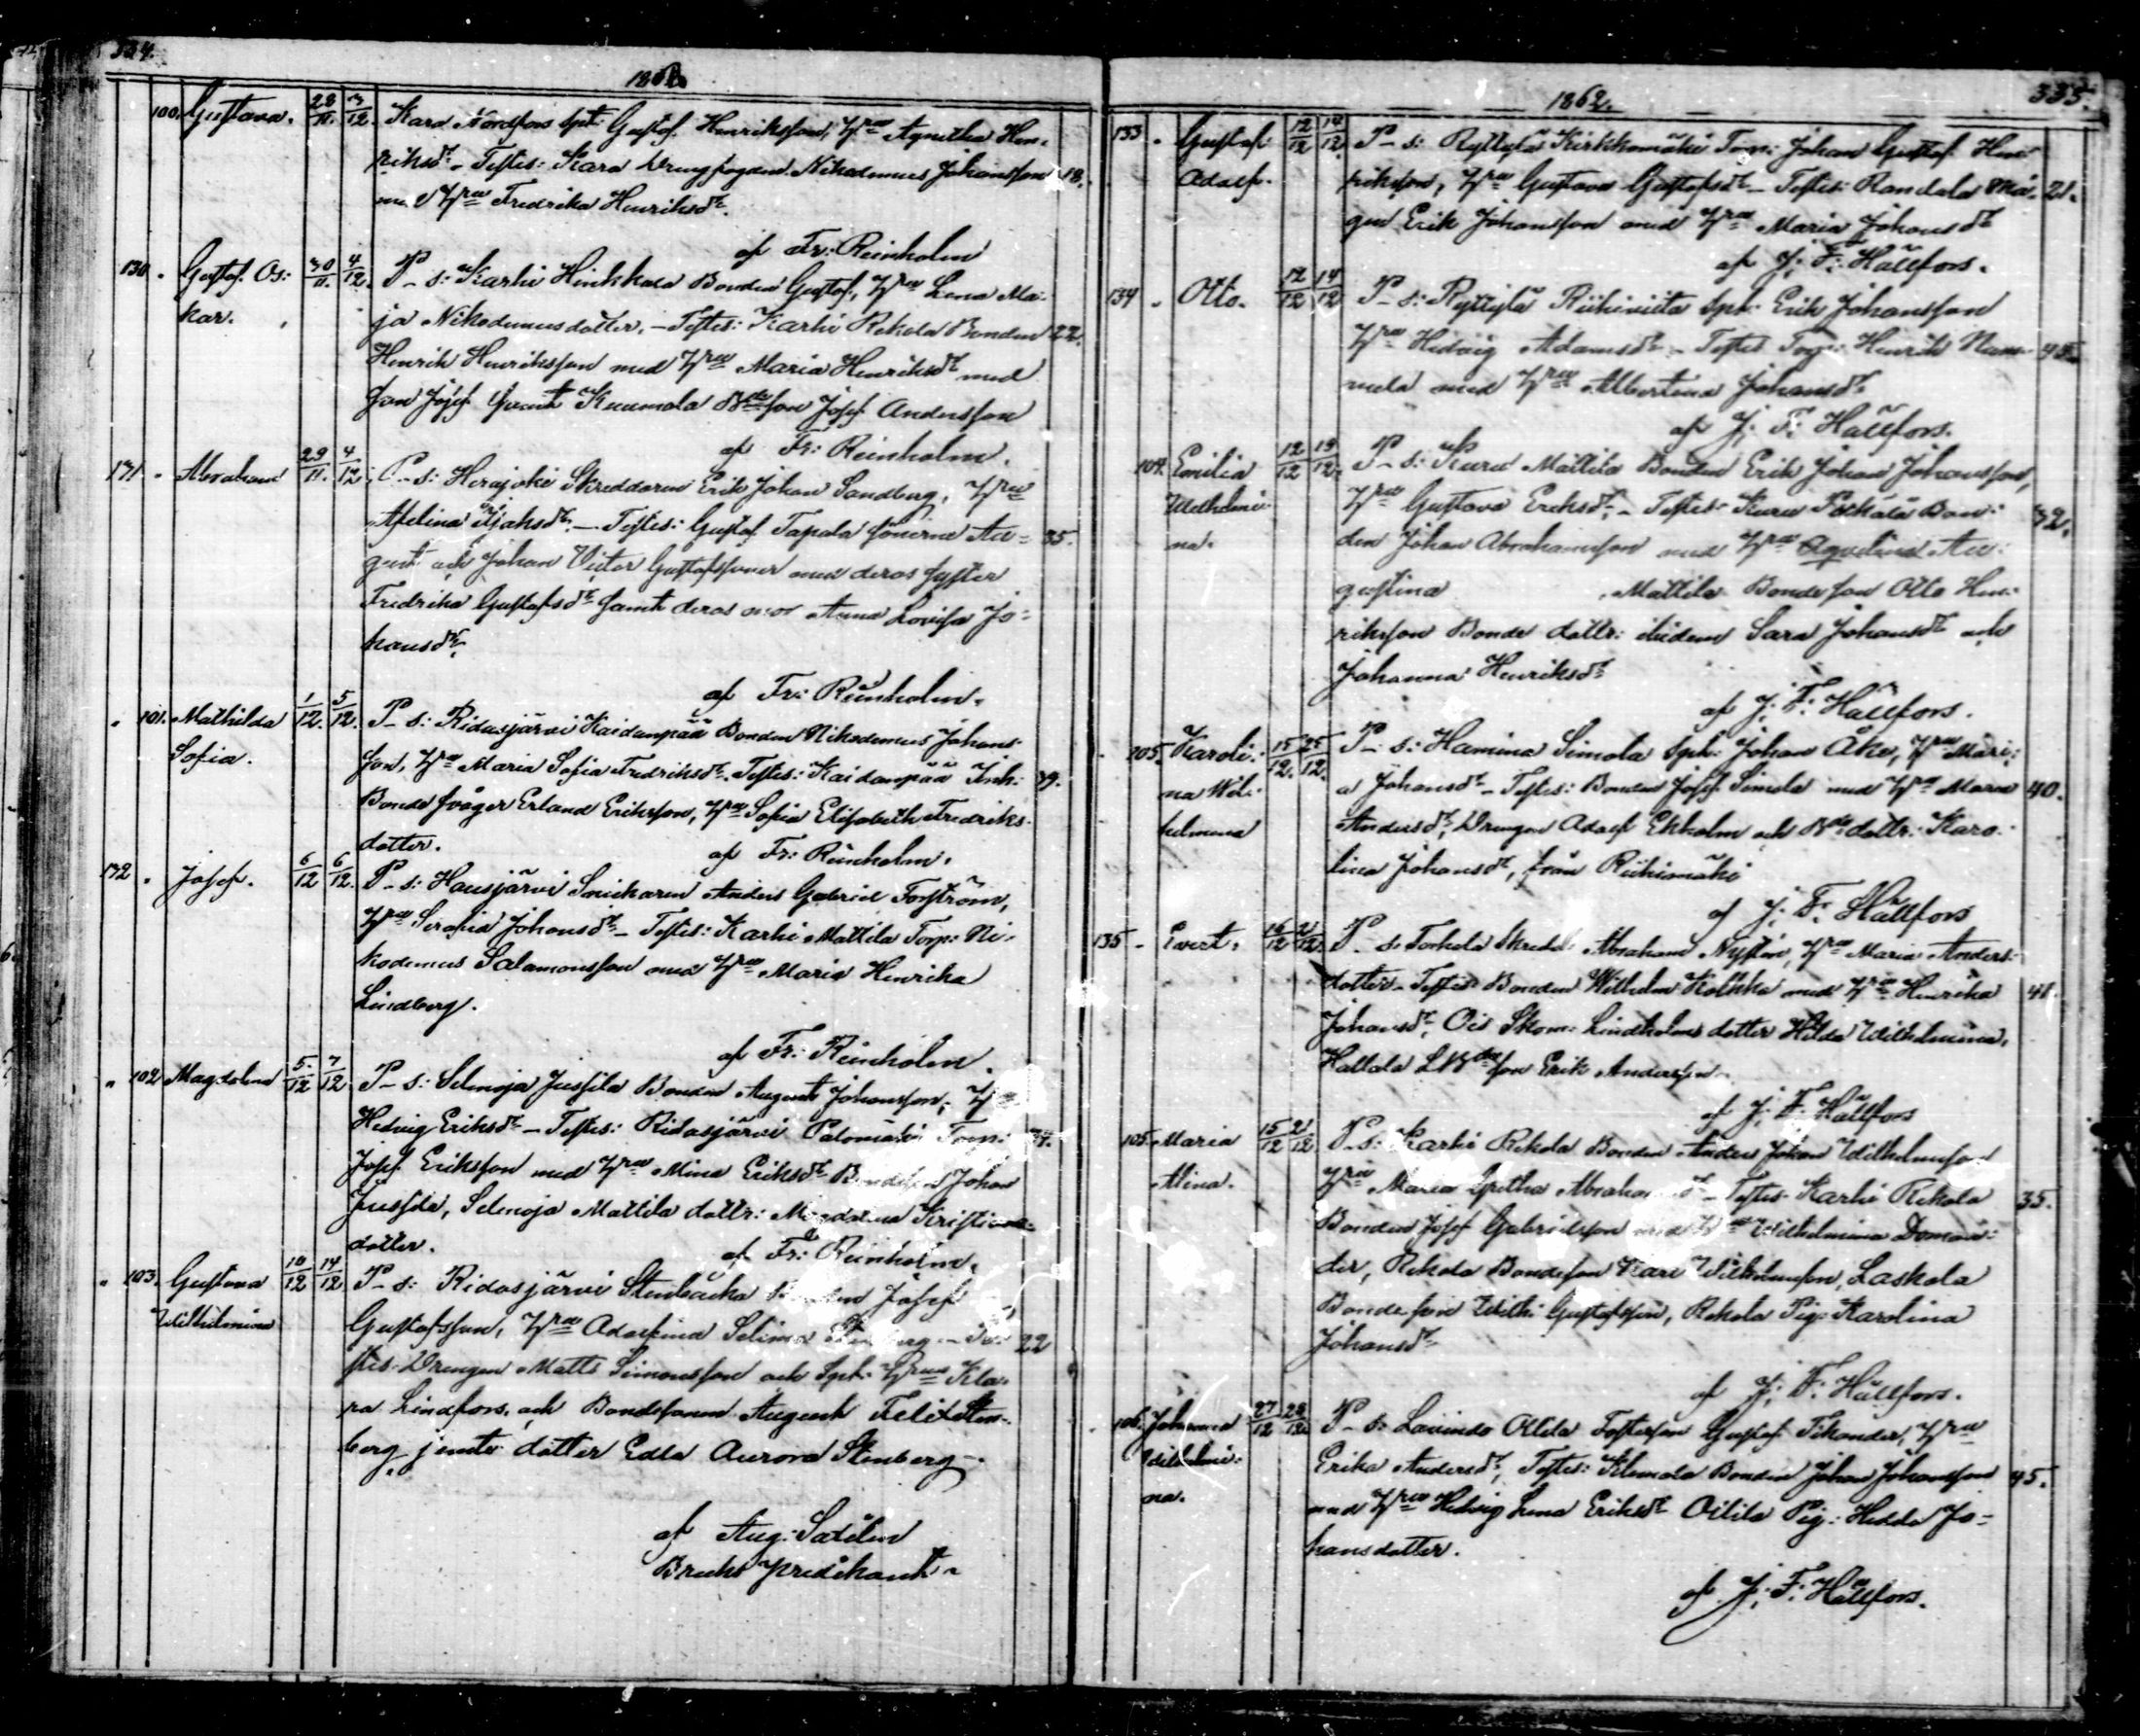 334.
1862.
100. Gustava. 28/11. 3/12. Kara Nordfors Spt: Gustaf Henriksson, Hru Agnetha Hen-
riksdr - Testes: Kara Drengfogden Nikodemus Johansson 18.
med Hru Fredrika Henriksdr.
af Fr: Reinholm
130. Gustaf Os: 30/11. 4/12. P - s: Karhi Hinkkala Bonden Gustaf, Hru Lena Ma-
kar. ja Nikodemusdotter. - Testes: Karhi Rekola Bonden 22.
Henrik Henriksson med Hru Maria Henriksdr med
son Josef samt Kuumola Bdeson Josef Andersson
af Fr: Reinholm.
131 - Abraham 29/11. 4/12. P - s: Herajoki Skreddaren Erik Johan Sandberg, Hru
Afelina Isaksdr. - Testes: Gustaf Tapala sönerne Au- 35.
gust och Johan Victor Gustafssoner med deras syster
Fredrika Gustafsdr samt deras mor Anna Lovisa Jo-
hansdr.
af Fr: Reinholm.
101. Mathilda 1/12. 5/12. P - s: Ridasjärvi Kaidanpää Bonden Nikodemus Johans-
Sofia. son, Hru Maria Sofia Fredriksdr. Testes: Kaidanpää Inh: 39.
Bonde svåger Erland Eriksson, Hru Sofia Elisabeth Fredriks-
dotter. af Fr: Reinholm.
132. Josef. 6/12 6/12. P - s: Hausjärvi Snickaren Anders Gabriel Forström,
Hru Serafia Johansdr - Testes: Karhi Mattila Torp: Ni-
kodemus Salamonsson med Hru Maria Henrika
Lindberg.
af Fr: Reinholm.
102. Magdalena 5/12 7/12 P - s: Selänoja Jussila Bonden August Johansson,
Hedvig Eriksdr - Testes: Ridasjärvi Palomäki Torp:
Josef Eriksson med Hru Mina Eriksdr Johan
Jussila, Selänoja Mattila dottr: Magdalena Kristians-
dotter. af Fr: Reinholm.
103. Gustava 10/12 14/12 P - s: Ridasjärvi Stenbacka Josef
Wilhelmina Gustafsson, Hru Adolfina Selima - Te- 22
stes: Drengen Matts Simonsson och Spt: Hru Kla-
ra Lindfors, och Bondesonen August Felix Sten-
berg jemte dotter Edla Aurora Stenberg.
af Aug: Sadelin
Bruks predikant.
335.
1862.
133 - Gustaf 12/12 14/12. P - s: Ryttylä Kirkkomäki Torp: Johan Gustaf Hen-
Adolf. riksson, Hru Gustava Gustafsdr - Testes: Randala Må- 21.
gen Erik Johansson med Hru Maria Johansdr
af J: F: Hällfors.
134 - Otto. 12/12 14/12 P - s: Ryttylä Riihiviita Spt: Erik Johansson
Hru Hedvig Adamsdr - Testes Torp: Henrik Num-
mela med Hru Albertina Johansdr
af J: F: Hällfors.
104. Emilia 12/12 19/12. P - s: Kuru Mattila Bonden Erik Johan Johansson,
Wilhelmi- Hru Gustava Eriksdr. - Testes: Kuru Bon- 32.
na. den Johan Abrahamsson med Hru Au-
gustina Mattila Bondeson Otto Hen-
riksson Bonde dottr: ibidem Sara Johansdr och
Johanna Henriksdr
af J: F: Hällfors.
105. Karoli- 15/12. 25/12. P - s: Hamina Simola Spt: Johan Åke, Hru Mari-
na Wil- a Johansdr - Testes: Bonden Josef Simola med Hru Maria 40.
helmina Andersdr, Drengen Adolf Ekholm och Bde dottr: Karo-
lina Johansdr, från Riihimäki
af J: F: Hällfors
135 - Evert. 16/12 21/12. P - s: Torhola Skredd: Abraham Nystén, Hru Maria Anders-
dotter - Testes Bonden Wilhelm Kolkka med Hru Henrika 41.
Johansdr, Ois Skom: Lindholms dotter Hilda Wilhelmina,
Hattala Bdeson Erik Andersson.
af J: F: Hällfors
105. Maria 15/12 21/12 P - s: Karhi Rekola Bonden Anders Johan Wilhelmsson
Alina. Hru Maria Gretha - Testes: Karhi Rekola 35.
Bonden Josef Gabrielsson med Hru Wilhelmina Doman-
der, Rekola Bondeson Karl Wilhelmsson, Laskala
Bondeson Wilh: Gustafsson, Rekola Pig: Karolina
Johansdr
af J: F: Hällfors.
106. Johanna 27/12 28/12. P - s: Lavinto Ollila Fosterson Gustaf Tikander, Hru
Wilhelmi- Erika Andersdr, Testes: Klemola Bonden Johan Johansson 45.
na. med Hru Hedvig Lena Eriksdr Ollila Pig: Hedda Jo-
hansdotter.
af J: F: Hällfors.